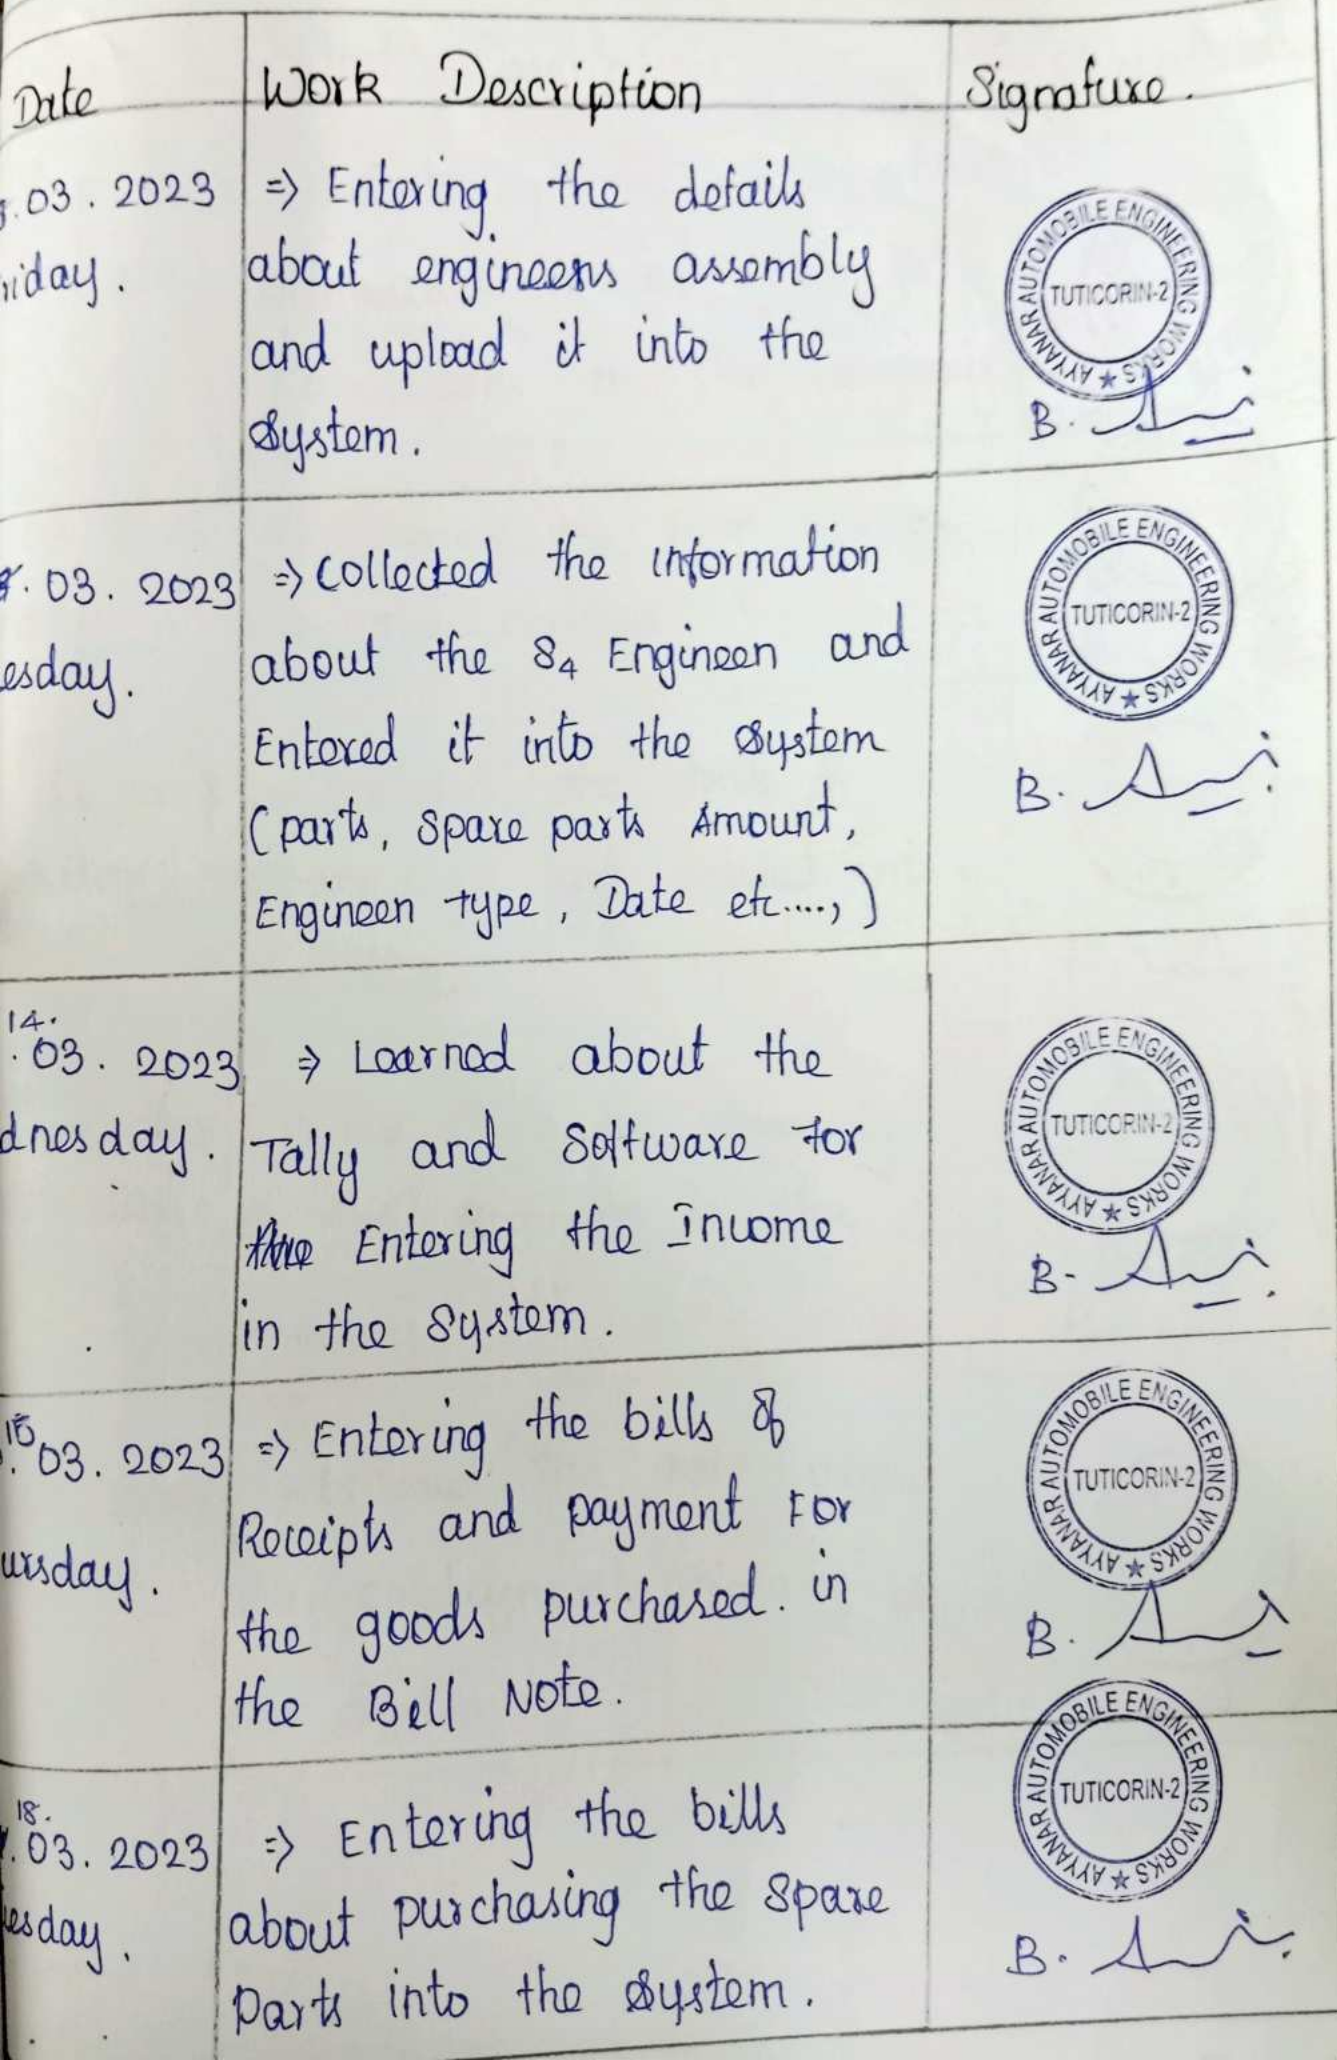 Date Work Description Signature.
.03.2023 => Entering the details
riday. about engineers assembly
and upload it into the
System.
AYYANAR AUTOMOBILE ENGINEERING WORKS ★
TUTICORIN-2
B.
.03.2023 => Collected the Information
esday. about the S4 Engineen and
Entered it into the System
(parts, Spare parts Amount,
Engineen type, Date etc....,)
AYYANAR AUTOMOBILE ENGINEERING WORKS ★
TUTICORIN-2
B.
14.
.03.2023 => Learned about the
dnesday. Tally and Software for
Entering the Income
in the System.
AYYANAR AUTOMOBILE ENGINEERING WORKS ★
TUTICORIN-2
B-
15
.03.2023 => Entering the bills of
ursday. Receipts and payment For
the goods purchased. in
the Bill Note.
AYYANAR AUTOMOBILE ENGINEERING WORKS ★
TUTICORIN-2
B.
18.
.03.2023 => Entering the bills
esday. about purchasing the Spare
Parts into the System.
AYYANAR AUTOMOBILE ENGINEERING WORKS ★
TUTICORIN-2
B.